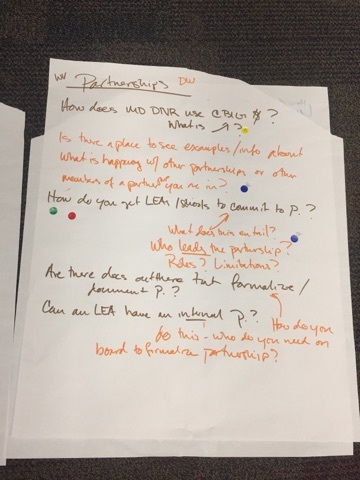 WV Partnerships DW
How does MD DNR use CBIG $ ?
What is ?
Is there a place to see examples/info about
what is happening w/ other partnerships or other
members of a partner you are in?
How do you get LEAs/schools to commit to P. ?
What does this entail?
Who leads the partnership?
Roles? Limitations?
Are there docs out there that formalize/
document P. ?
Can an LEA have an internal P. ?
How do you
do this - who do you need on
board to formalize partnership?